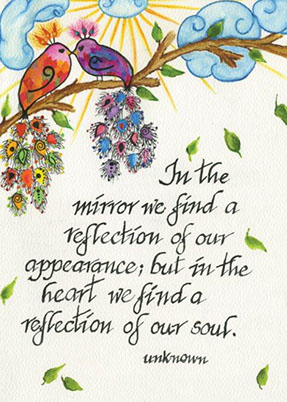 In the
mirror we find a
reflection of our
appearance; but in the
heart we find a
reflection of our soul.
unknown